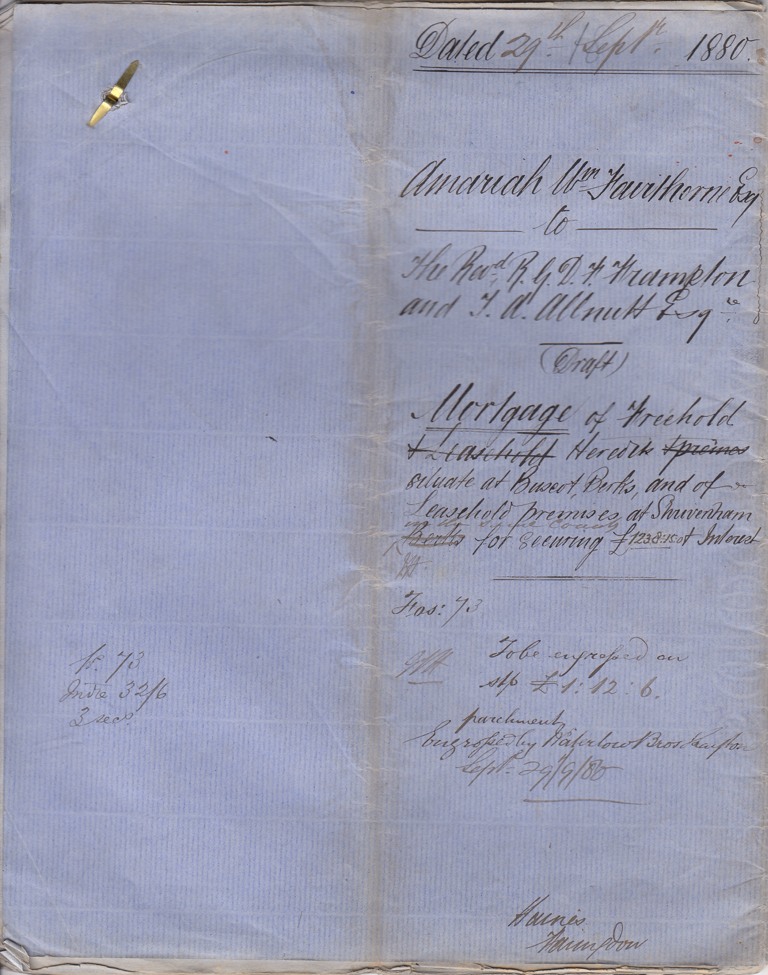 Dated 29th Sept. 1880.
Amariah Wm Fawthorne Esq
to
The Revd. R. G. D. F. Frampton
and T. A. Allnutt Esqre
(Draft)
Mortgage of Freehold
& Leasehold Heredits & premes
situate at Buscot, Berks, and of
Leasehold premises at Shrivenham
in the same County
Berks for securing £1238:15:0 & Interest
Fos: 73
To be engrossed on
stp £1:12:6.
parchment
Engrossed by Waterlow Bros
Sept. 29/9/80
Fos. 73
Indre 32/6
3 secs.
Haines
Faringdon